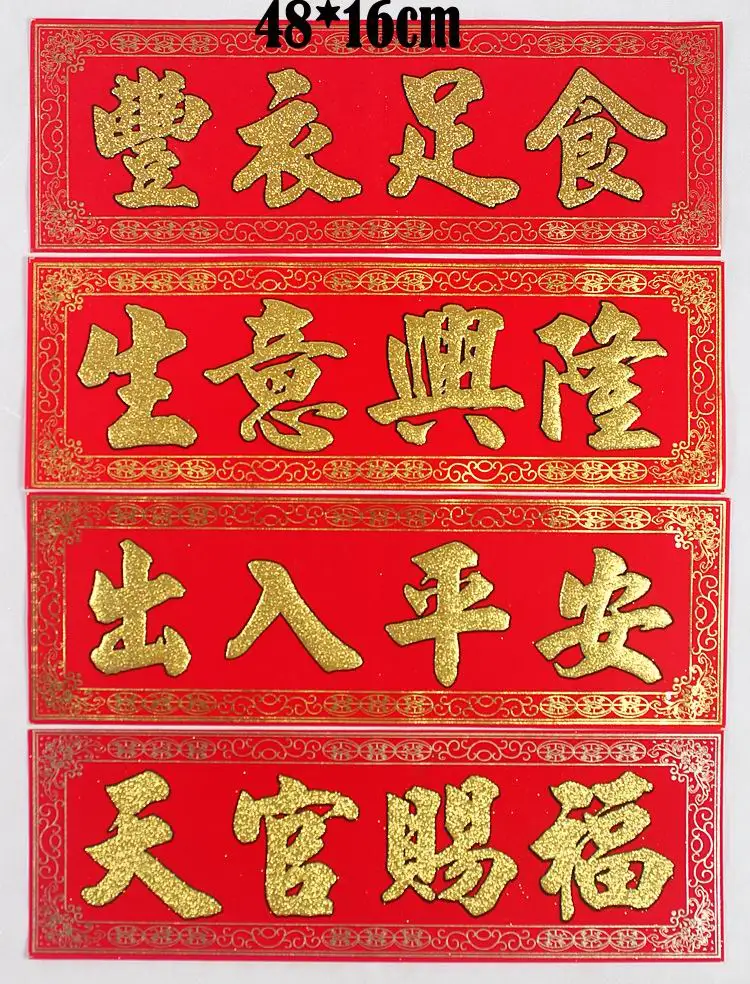 48*16cm
豐衣足食
生意興隆
出入平安
天官賜福